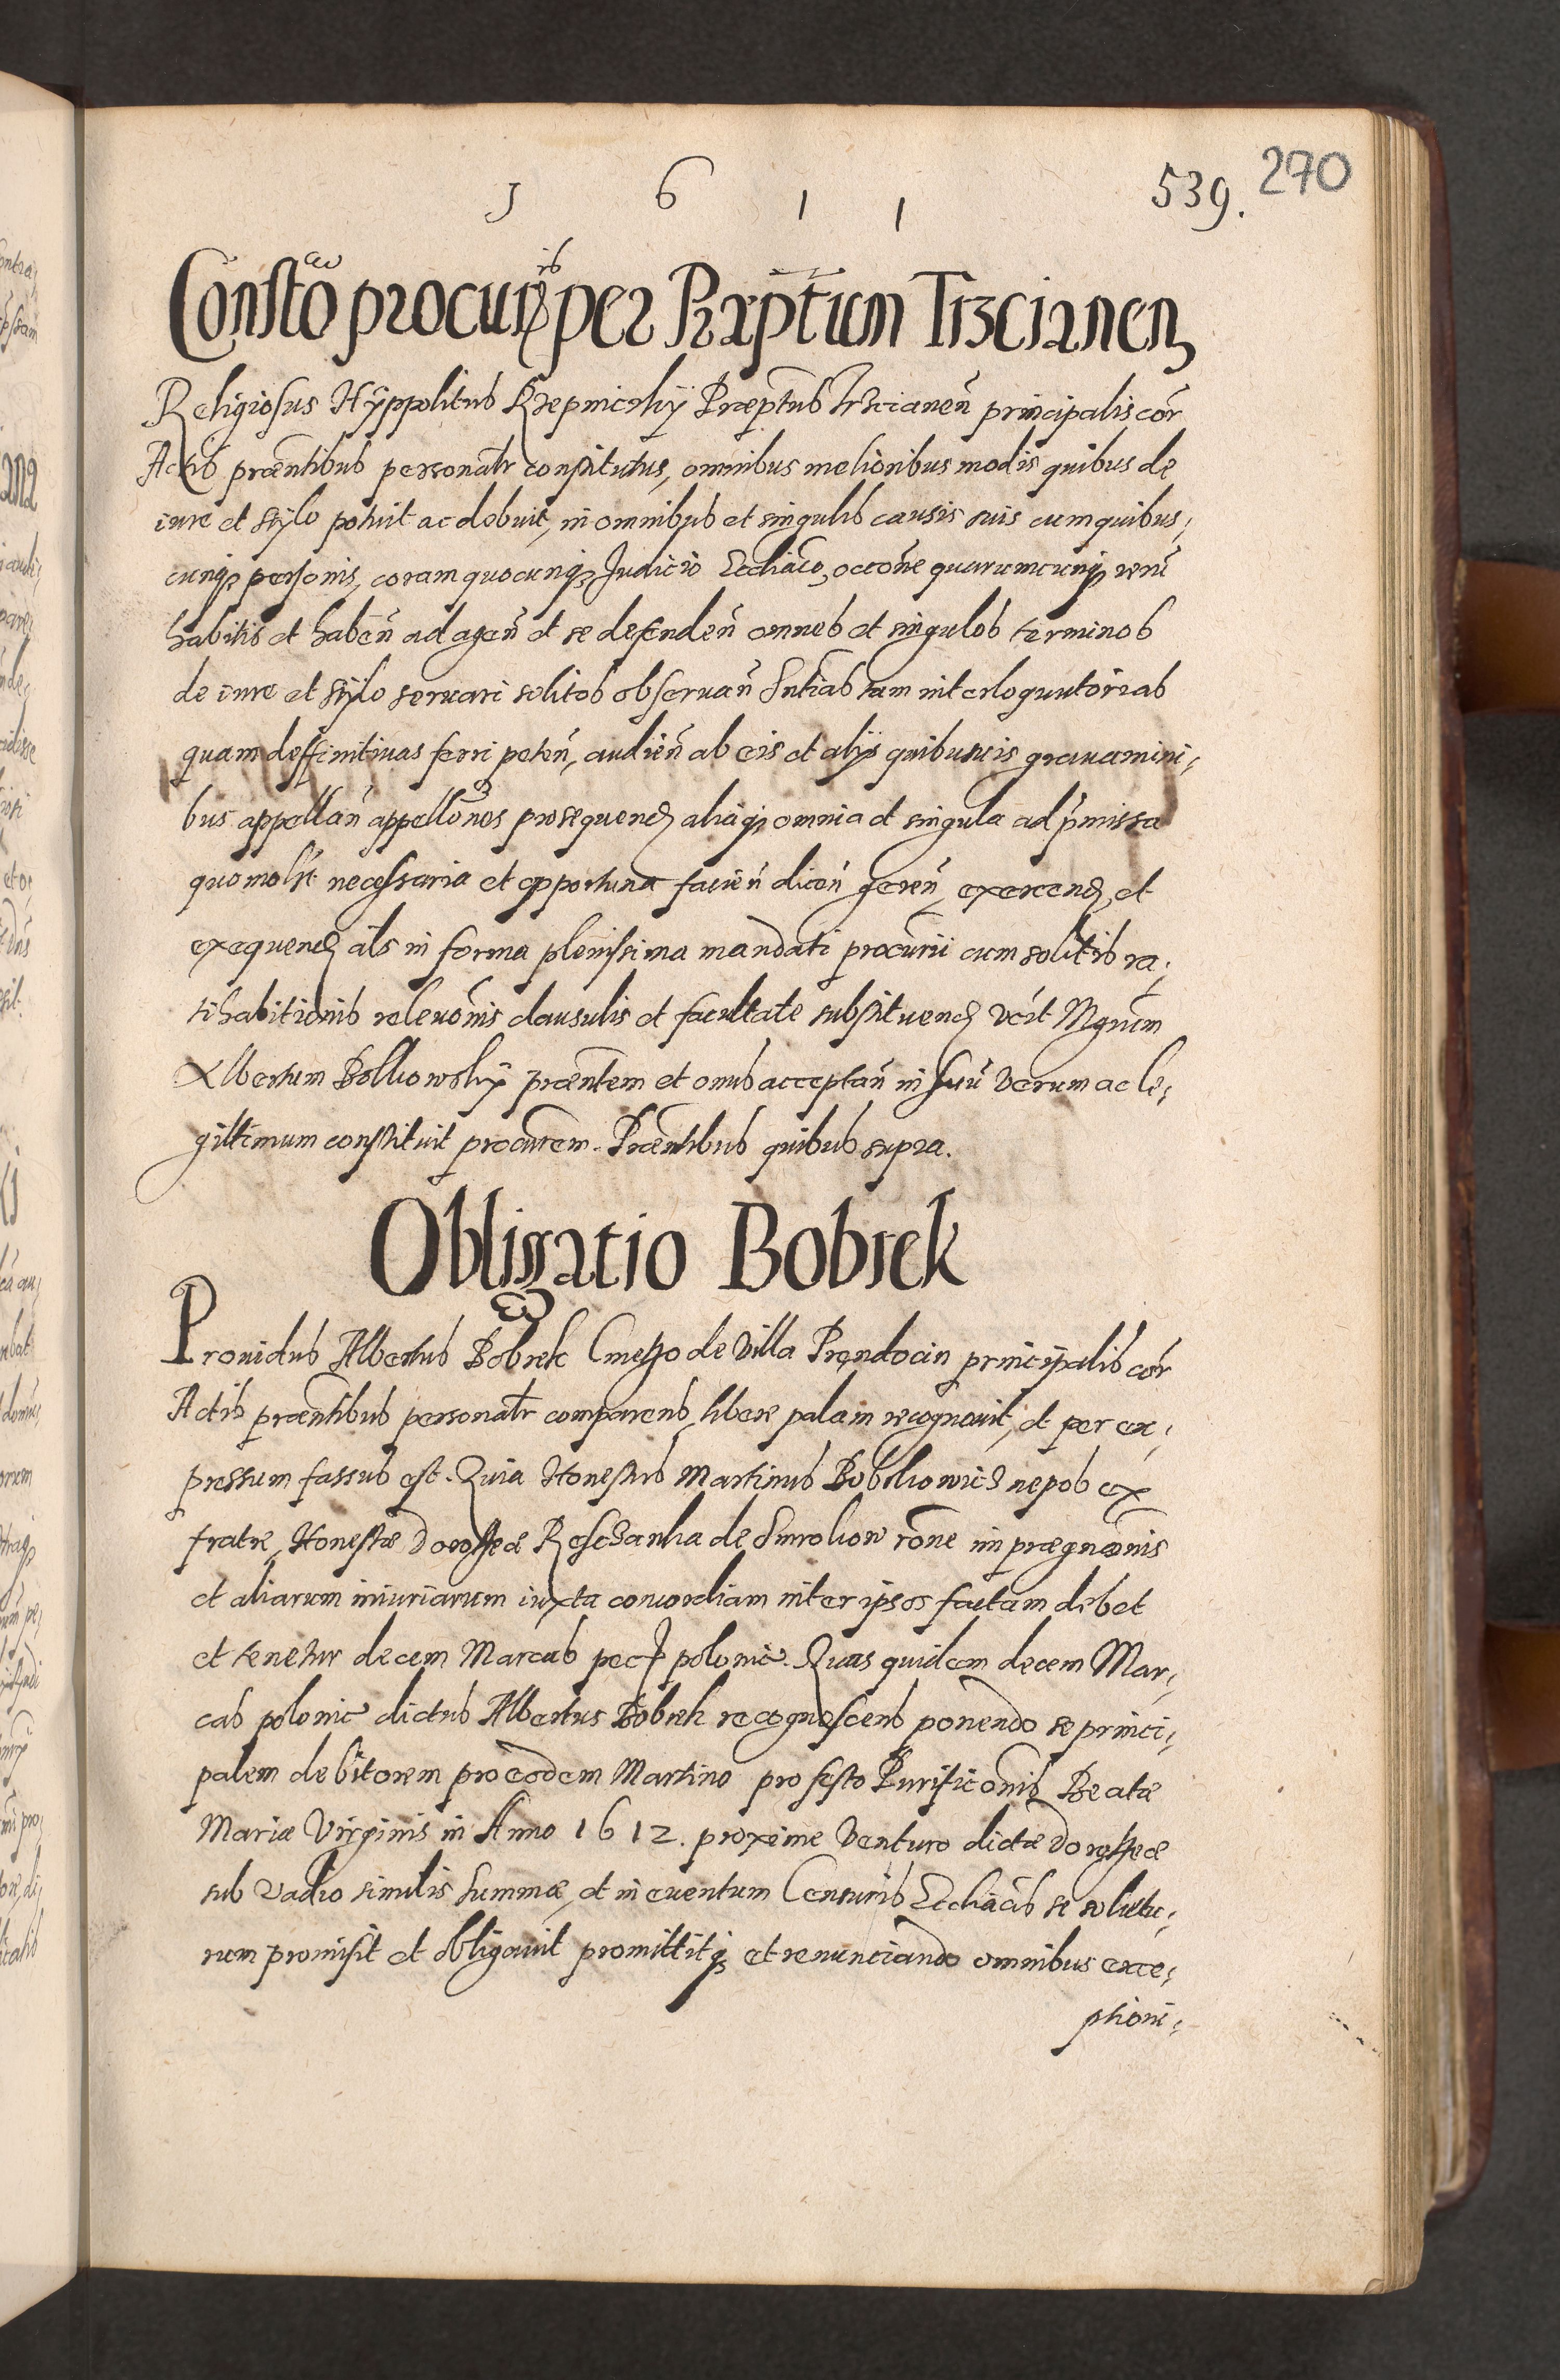 1 6 1 1
539. 270
Constō procur̄ per Præptum Trzcianen̄
Religiosus Hÿppolitus Rzepniczkÿ Præptus Trzcianen̄ principalis cor̄
Actis præntibus personalr̄ constitutus, omnibus melioribus modis quibus de
iure et stylo potuit ac debuit, in omnibus et singulis causis suis cum quibus,
cunq3 personis, coram quocunq3 Judicio Ecchiāco, occōne quarumcunq3 rerū
habitis et haben̄ ad agen̄ et se defenden̄ omnes et singulos terminos
de iure et stylo seruari solitos obseruan̄ Sntīas tam interloquutorias
quam deffinitiuas ferri peten̄, audien̄ ab eis et alijs quibusuis grauamini,
bus appellan̄ appellōnes prosequend aliaq3 omnia et singula ad p̄missa
quomolt necessaria et opportuna facien̄ dicen̄ geren̄, exercend, et
exequend āls in forma plenissima mandati procur̄ii cum solitis ra,
tihabitionis releuōnis clausulis et facultate substituend vcīt Mgnc̄m
Albertum Bolkowskÿ præntem et onus acceptan̄ in suū verum ac le,
gittimum constituit procur̄em. Præntibus quibus supra.
Obligatio Bobrek
Prouidus Albertus Bobrek Cmetho de Villa Prendocin principalis cor̄
Actis præntibus personalr̄ comparens, libere palam recognouit, et per ex,
pressum fassus est. Quia Honestus Martinus Bobkowic3 nepos ex
fratre, Honestæ Dorotheæ Resczanka de Smrokow rōne impregnaōnis
et aliarum iniuriarum iuxta concordiam inter ipsos factam debet
et tenetur decem Marcas pec polonic. Quas quidem decem Mar,
cas polonic dictus Albertus Bobrek recognoscens ponendo se princi,
palem debitorem pro eodem Martino pro festo Purificōnis Beatæ
Mariæ Virginis in Anno 1612. proxime venturo dictæ Dorotheæ
sub vadio similis summæ, et in euentum Censuris Ecchiācis se solutu,
rum promisit et obligauit promittitq3 et renunciando omnibus exce,
ptioni,